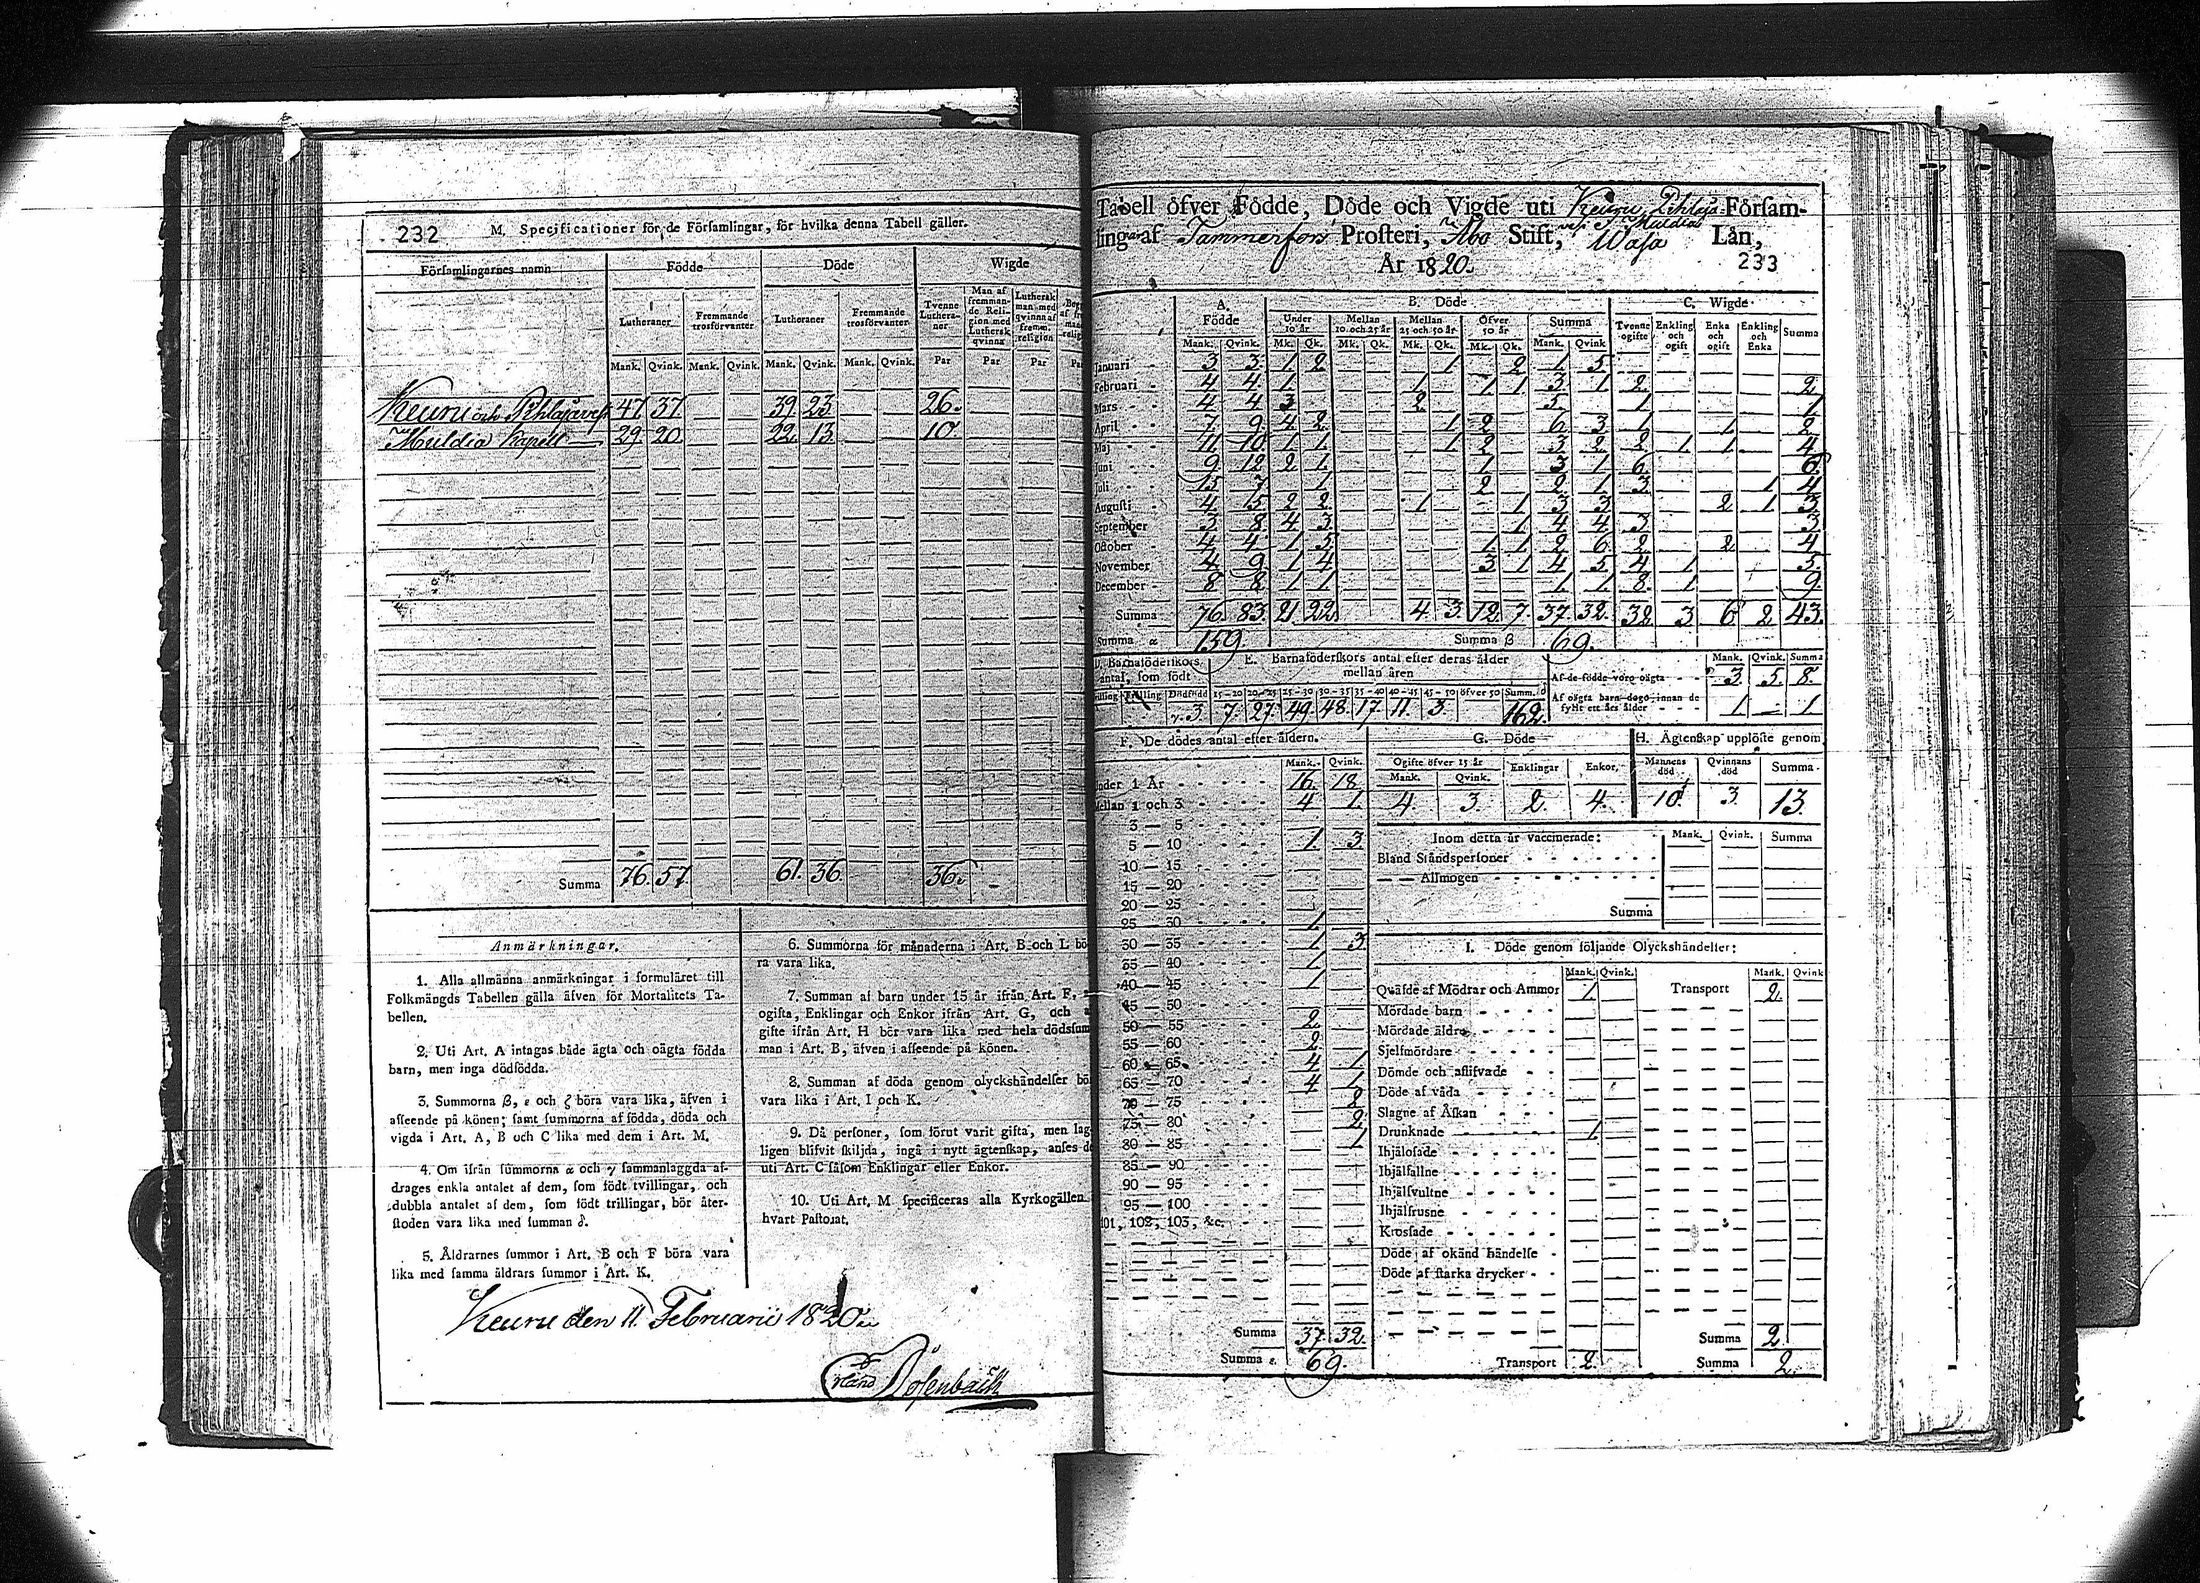 232 M. Specificationer för de Församlingar, för hvilka denna Tabell gäller.
Församlingarnes namn Födde Döde Wigde
Lutheraner Fremmande trosförvanter Lutheraner Fremmande trosförvanter Tvenne Lutheraner Man af fremmande Religion med Luthersk qvinna Luthersk man med qvinna af fremm. religion
Mank. Qvink. Mank. Qvink. Mank. Qvink. Mank. Qvink. Par Par Par
Keuru och Pihlajavesi 47 37 39 23 26.
Muldia Kapell 29 20 22 13 10.
Summa 76. 57. 61. 36 36.
Anmärkningar.
1. Alla allmänna anmärkningar i formuläret till
Folkmängds Tabellen gälla äfven för Mortalitets Ta-
bellen.
2. Uti Art. A intagas både ägta och oägta födda
barn, men inga dödfödda.
3. Summorna β, ε och ζ böra vara lika, äfven i
afseende på könen; samt summorna af födda, döda och
vigda i Art. A, B och C lika med dem i Art. M.
4. Om ifrån summorna α och γ sammanlaggda af-
drages enkla antalet af dem, som födt tvillingar, och
dubbla antalet af dem, som födt trillingar, bör åter-
stoden vara lika med summan δ.
5. Åldrarnes summor i Art. B och F böra vara
lika med samma åldrars summor i Art. K.
6. Summorna för månaderna i Art. B och L bö-
ra vara lika.
7. Summan af barn under 15 år ifrån Art. F,
ogifta, Enklingar och Enkor ifrån Art. G, och
gifte ifrån Art. H bör vara lika med hela dödssum
man i Art. B, äfven i afseende på könen.
8. Summan af döda genom olyckshändelser bö
vara lika i Art. I och K.
9. Då personer, som förut varit gifta, men lag
ligen blifvit skiljda, ingå i nytt ägtenskap, anses de
uti Art. C såsom Enklingar eller Enkor.
10. Uti Art. M specificeras alla Kyrkogällen
hvart Pastorat.
Keuru den 11 Februarii 1820
Erland Rosenback
Tabell öfver Födde, Döde och Vigde uti Keuru, Pihlaja- Församling
ling af Tammerfors Prosteri, Åbo Stift, vesi o. Muldia Wasa Län,
År 1820. 233
A. Födde B. Döde C. Wigde
Under 10 år Mellan 10 och 25 år Mellan 25 och 50 år Öfver 50 år Summa Tvenne ogifte Enkling och ogift Enka och ogift Enkling och Enka Summa
Mank. Qvink. Mk. Qk. Mk. Qk. Mk. Qk. Mk. Qk. Mank. Qvink
Januari 3 3 1 2 1 2 1 5
Februari 4 4 1 1 1 1 3 1 2 2
Mars 4 4 3 2 5 1 1
April 7 9 4 2 1 2 6 3 1 1 2
Maj 11 10 1 1 1 2 3 2 2 1 1 4
Juni 9 12 2 1 1 3 1 6 6
Juli 15 7 1 2 2 1 3 1 4
Augusti 4 15 2 2 1 1 3 3 2 1 3
September 3 8 4 3 1 4 4 3 3
October 4 4 1 5 1 1 2 6 2 2 4
November 4 9 1 4 3 1 4 5 4 1 5
December 8 8 1 1 1 1 8 1 9
Summa 76. 83. 21 22 4 3 12. 7. 37. 32. 32 3 6 2 43.
Summa α 159 Summa β 69.
D. Barnaföderskors antal, som födt E. Barnaföderskors antal efter deras ålder mellan åren Mank. Qvink. Summa
Af de födde voro oägta 3 5 8
Trilling Dödfödd 15-20 20-25 25-30 30-35 35-40 40-45 45-50 öfver 50 Summ. δ
Af oägta barn dogo innan de fyllt ett års ålder 1 — 1
γ. 3. 7. 27. 49. 48. 17. 11. 3. 162.
F. De dödes antal efter åldern. G. Döde H. Ägtenskap upplöste genom
Mank. Qvink. Ogifte öfver 15 år Mank. Qvink. Enklingar Enkor Mannens död Qvinnans död Summa
4. 3. 2. 4. 10. 3. 13.
under 1 År 16. 18
mellan 1 och 3 4 1.
3 — 5
5 — 10 1. 3
10 — 15
15 — 20
20 — 25
25 — 30 1.
30 — 35 1 3.
35 — 40 1
40 — 45 1
45 — 50
50 — 55 2.
55 — 60 2
60 — 65 4 1
65 — 70 4 1
70 — 75 2
75 — 80 2
80 — 85 1
85 — 90
90 — 95
95 — 100
101, 102, 103, &c.
Summa 37. 32.
Summa ε. 69.
Inom detta år vaccinerade: Mank. Qvink. Summa
Bland Ståndspersoner
— — Allmogen
Summa
I. Döde genom följande Olyckshändelser:
Mank. Qvink. Mank. Qvink
Quäfde af Mödrar och Ammor 1. Transport 2.
Mördade barn
Mördade äldre
Sjelfmördare
Dömde och aflifvade
Döde af våda
Slagne af Åskan
Drunknade 1.
Ihjälosade
Ihjälfallne
Ihjälsvultne
Ihjälfrusne
Krossade
Döde af okänd händelse
Döde af starka drycker
Summa 2
Transport 2. Summa 2.